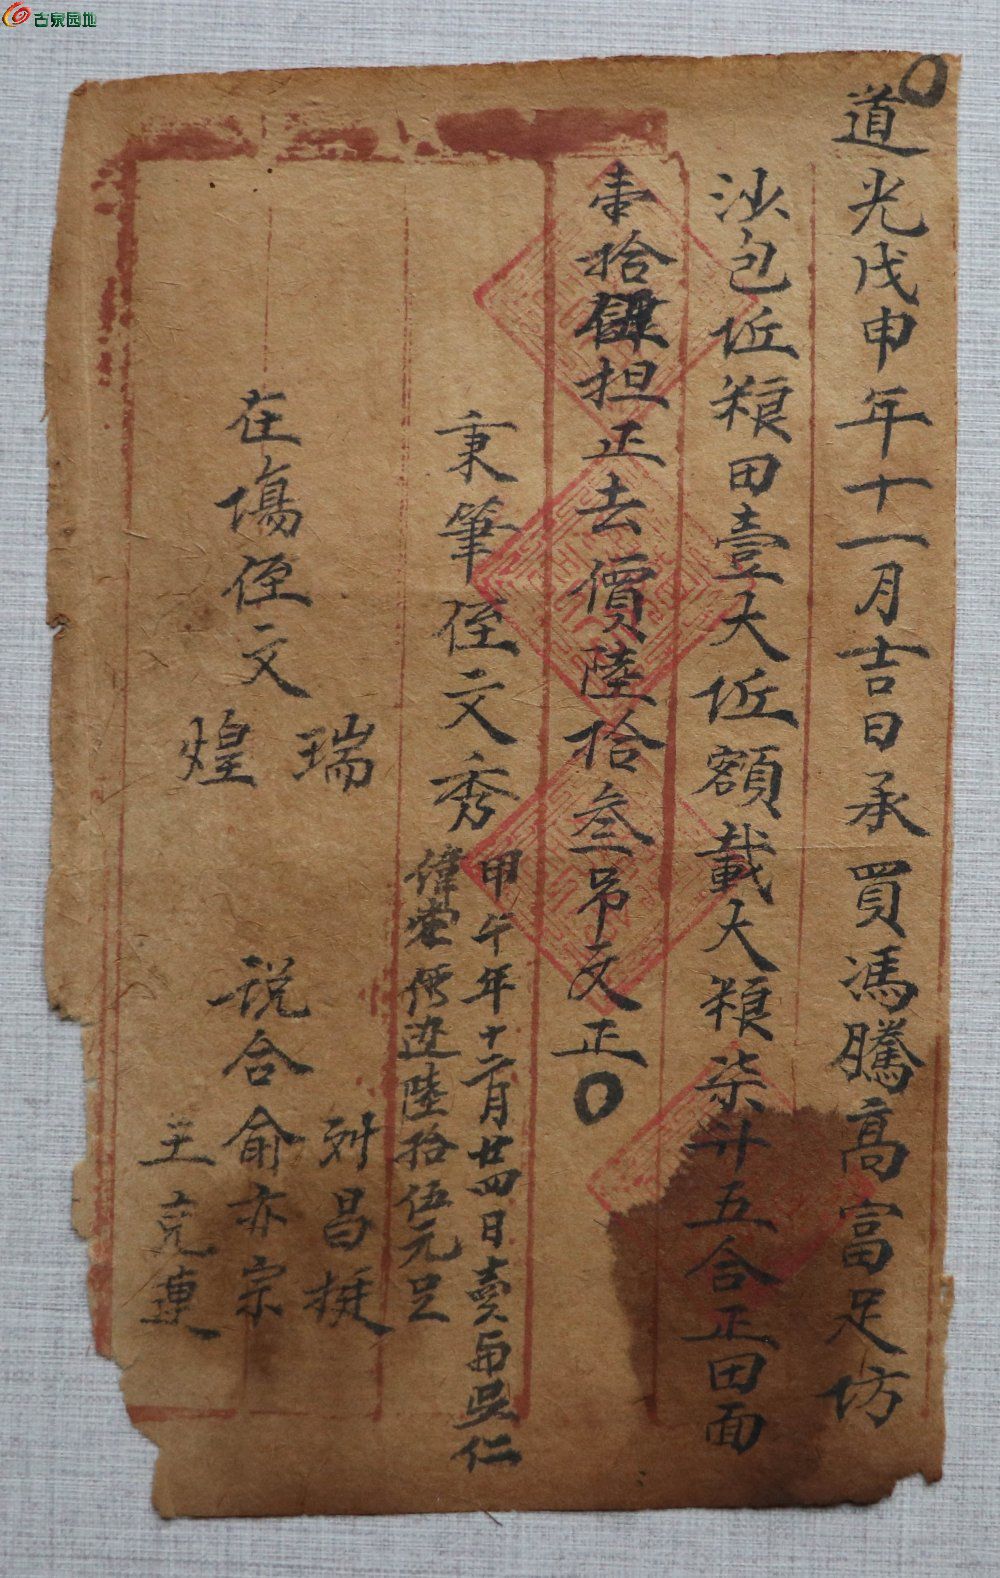 古泉园地
道光戊申年十一月吉日承買馮騰高富足坊
沙包坵粮田壹大坵額載大粮柒升五合正田面
壹拾肆担正去價陸拾叁吊文正
秉筆侄文秀
甲午年十二月廿四日賣與吳仁
偉 陸拾伍元足
在塲侄文
瑞
煌
説合
昌挺
俞亦宗
王克連